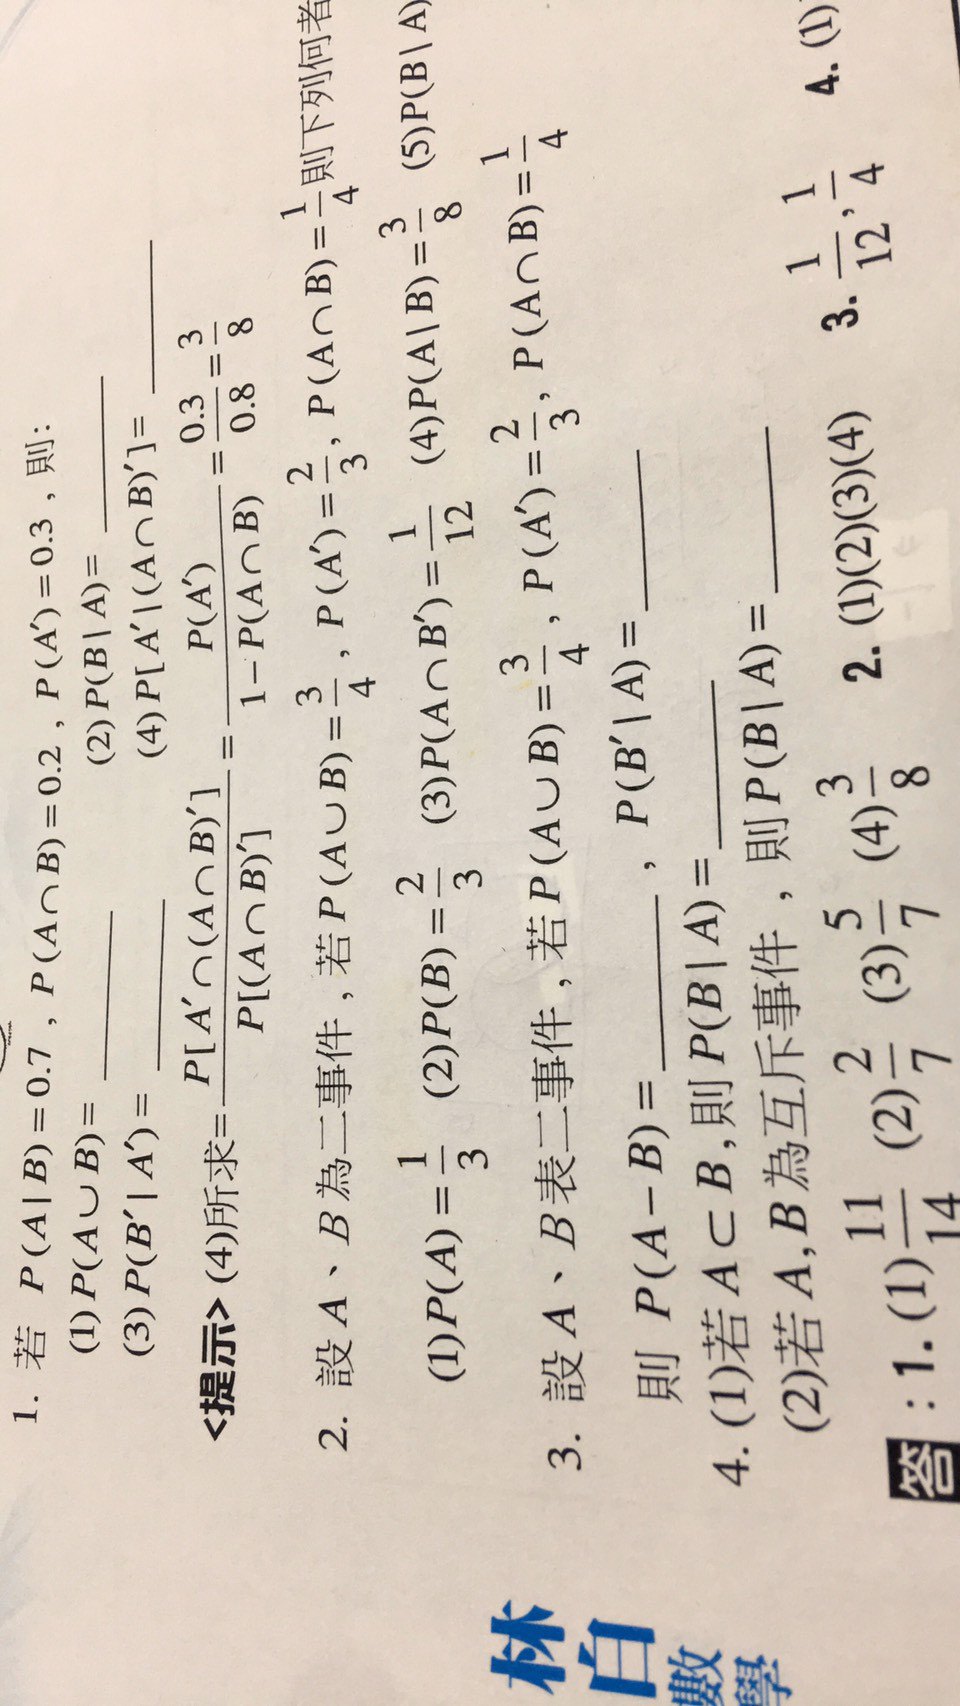 1. 若 P(A|B)=0.7 , P(A∩B)=0.2 , P(A′)=0.3 , 則:
(1)P(A∪B)=______ (2)P(B|A)=______
(3)P(B′|A′)=______ (4)P[A′|(A∩B)′]=______
<提示> (4)所求=P[A′∩(A∩B)′]/P[(A∩B)′] = P(A′)/1−P(A∩B) = 0.3/0.8 = 3/8
2. 設A、B為二事件,若P(A∪B)=3/4, P(A′)=2/3, P(A∩B)=1/4則下列何者
(1)P(A)=1/3 (2)P(B)=2/3 (3)P(A∩B′)=1/12 (4)P(A|B)=3/8 (5)P(B|A)
3. 設A、B表二事件,若P(A∪B)=3/4, P(A′)=2/3, P(A∩B)=1/4
則 P(A−B)=______, P(B′|A)=______
4. (1)若A⊂B,則P(B|A)=______
(2)若A,B為互斥事件,則P(B|A)=______
答:1. (1)11/14 (2)2/7 (3)5/7 (4)3/8 2. (1)(2)(3)(4) 3. 1/12,1/4 4. (1)
林
白
數
學